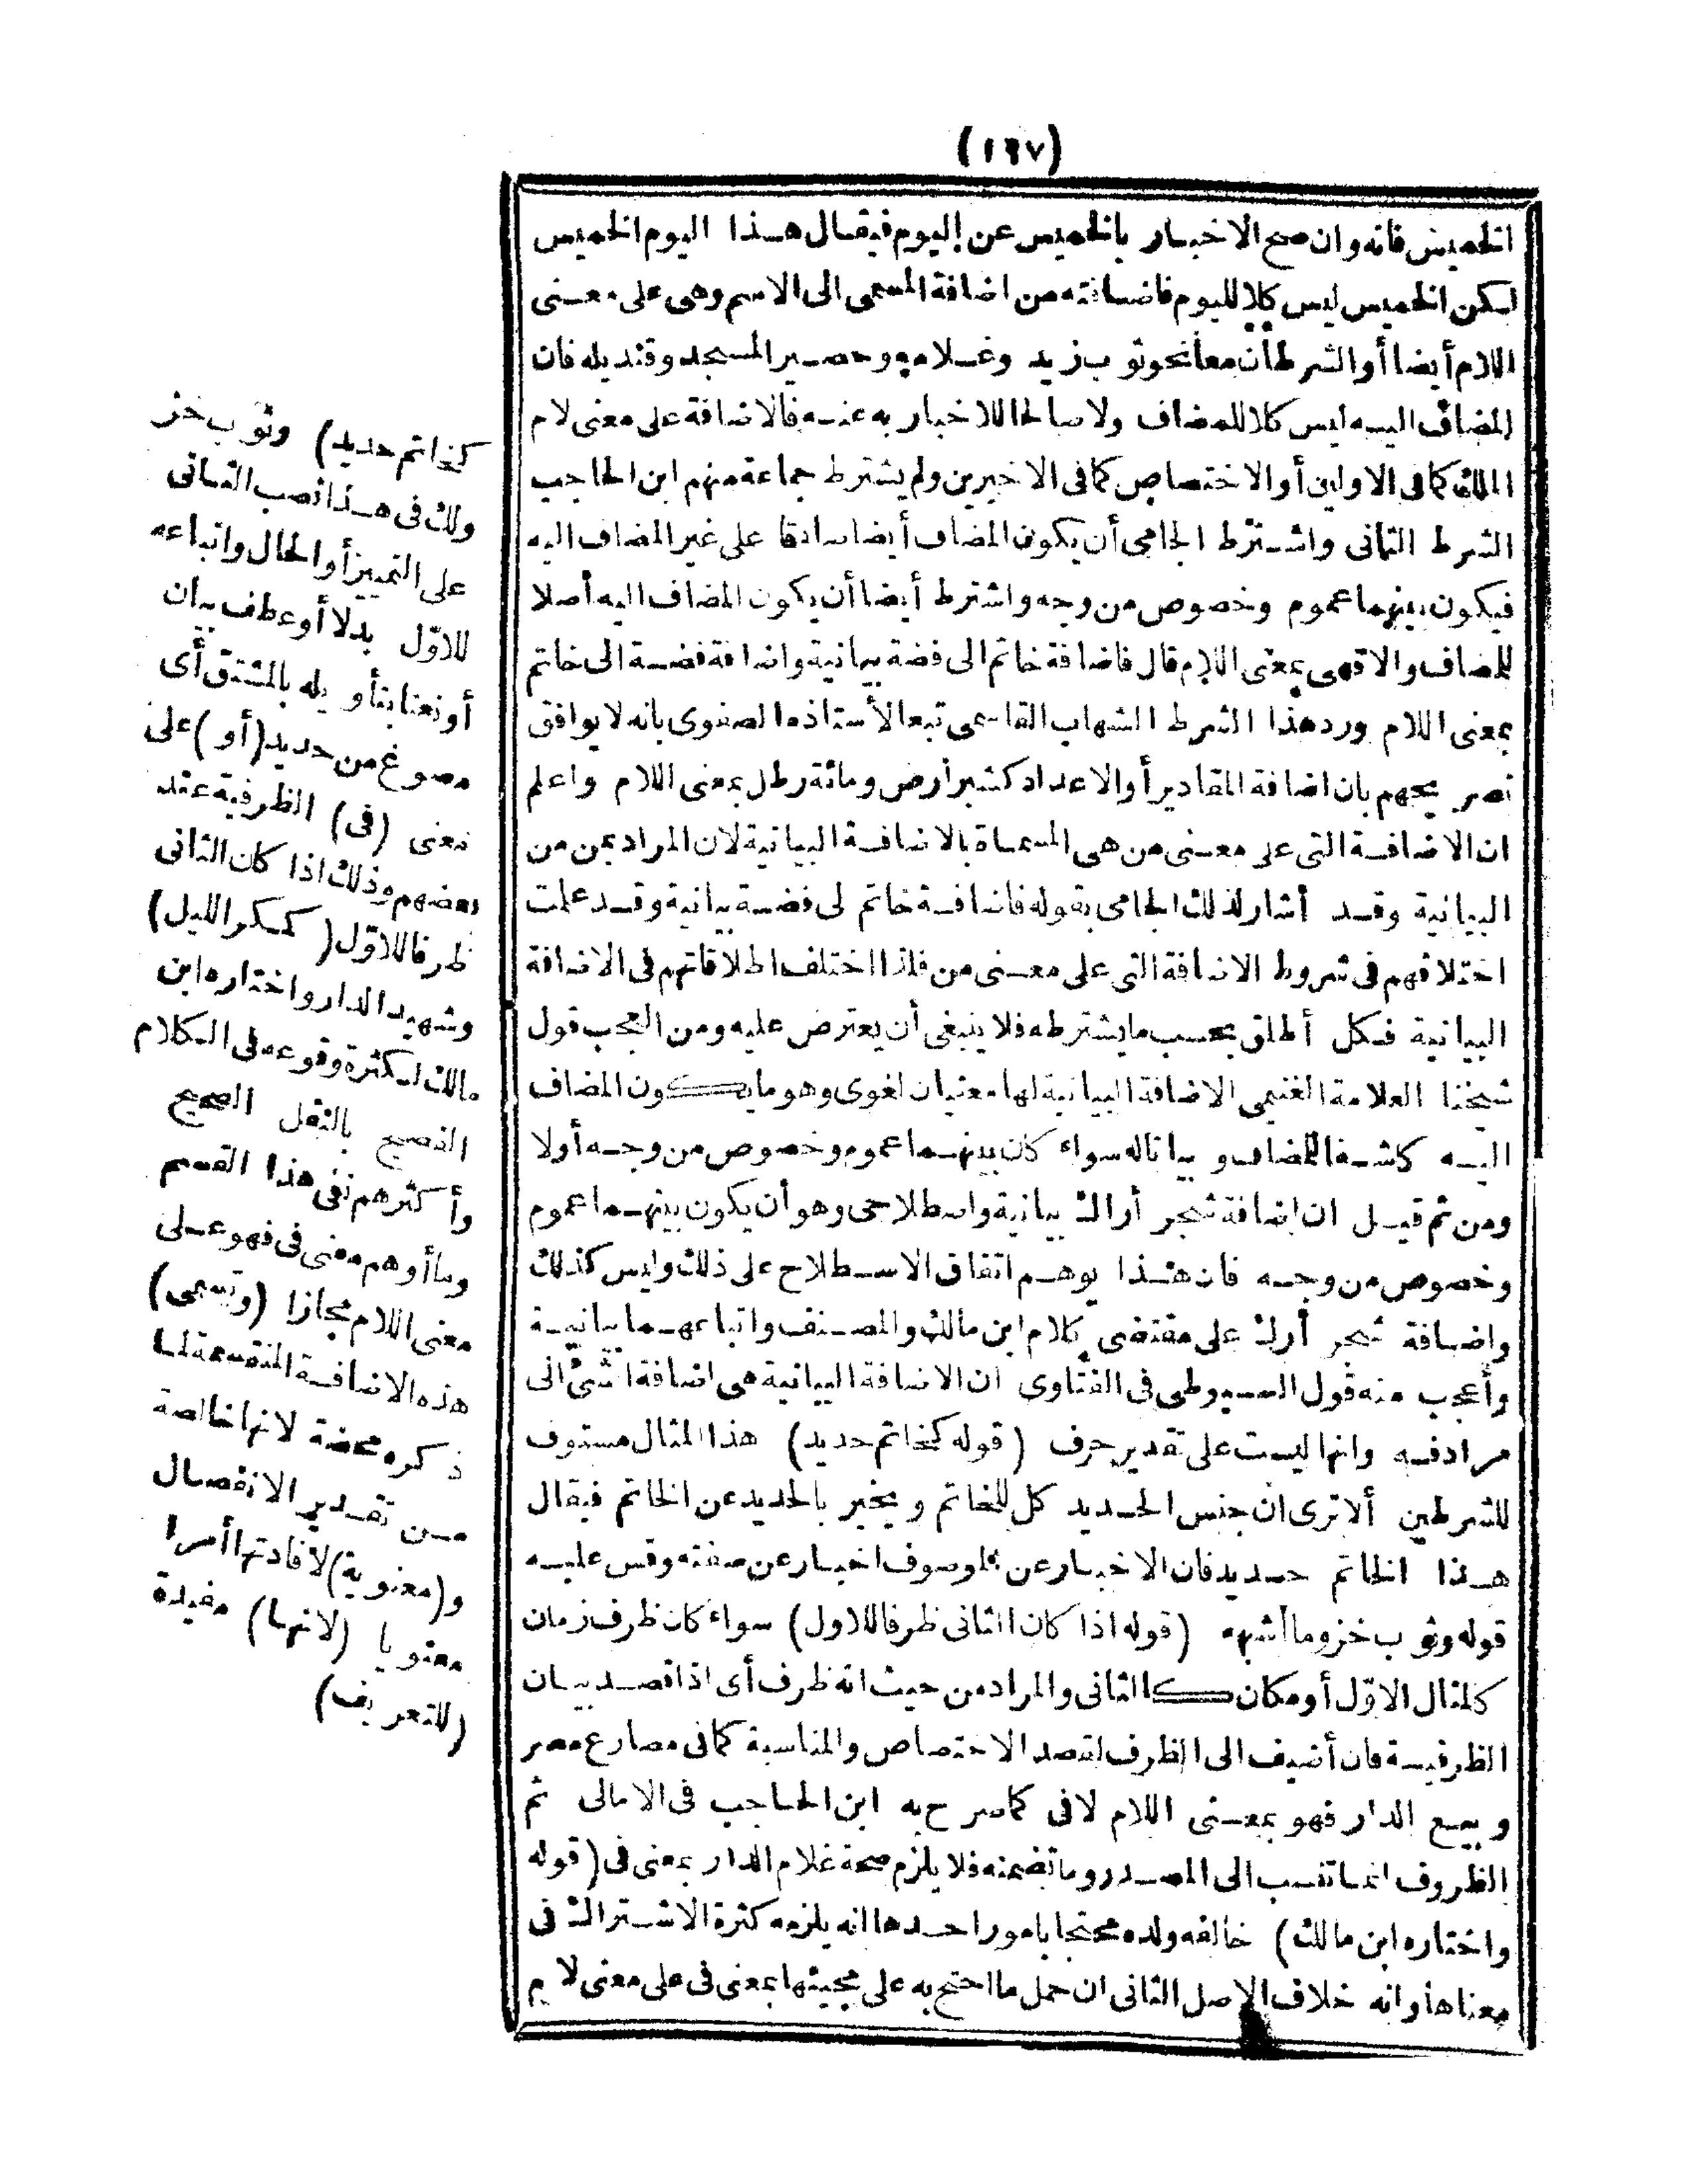 (١٩٧)
الخميس فانه وان صح الاخبار بالخميس عن اليوم فيقال هذا اليوم الخميس
لكن الخميس ليس كلا لليوم فاضافته من اضافة المسمى الى الاسم وهى على معنى
اللام أيضا أو الشرطان معا نحو ثوب زيد وغلامه وحصير المسجد وقنديله فان
المضاف اليه ليس كلا للمضاف ولا صالحا للاخبار به عنه فالاضافة على معنى لام
الملك كما فى الاولين أو الاختصاص كما فى الاخيرين ولم يشترط جماعة منهم ابن الحاجب
الشرط الثانى واشترط الجامى أن يكون المضاف أيضا صادقا على غير المضاف اليه
فيكون بينهما عموم وخصوص من وجه واشترط أيضا أن يكون المضاف اليه أصلا
للمضاف والا فهى بمعنى اللام قال فاضافة خاتم الى فضة بيانية واضافة فضة الى خاتم
بمعنى اللام ورد هذا الشرط الشهاب القاسمى تبعا لأستاذه الصفوى بانه لا يوافق
تصريحهم بان اضافة المقادير أو الاعداد كشبر أرض ومائة رطل بمعنى اللام واعلم
ان الاضافة التى على معنى من هى المسماة بالاضافة البيانية لان المراد بمن من
البيانية وقد أشار لذلك الجامى بقوله فاضافة خاتم لى فضة بيانية وقد علمت
اختلافهم فى شروط الاضافة التى على معنى من فلذا اختلف اطلاقاتهم فى الاضافة
البيانية فكل أطلق بحسب ما يشترطه فلا ينبغى أن يعترض عليه ومن العجب قول
شيخنا العلامة الغنيمى الاضافة البيانية لها معنيان لغوى وهو ما يكون المضاف
اليه كاشفا للمضاف وبيانا له سواء كان بينهما عموم وخصوص من وجه أولا
ومن ثم قيل ان اضافة شجر أراك بيانية واصطلاحى وهو أن يكون بينهما عموم
وخصوص من وجه فان هذا يوهم اتفاق الاصطلاح على ذلك وليس كذلك
واضافة شجر أراك على مقتضى كلام ابن مالك والمصنف واتباعهما بيانية
وأعجب منه قول السيوطى فى الفتاوى ان الاضافة البيانية هى اضافة الشئ الى
مرادفه وانها ليست على تقدير حرف (قوله كخاتم حديد) هذا المثال مستوف
للشرطين ألا ترى ان جنس الحديد كل للخاتم ويخبر بالحديد عن الخاتم فيقال
هذا الخاتم حديد فان الاخبار عن الموصوف اخبار عن صفته وقس عليه
قوله وثوب خز وما أشبهه (قوله اذا كان الثانى ظرفا للاول) سواء كان ظرف زمان
كالمثال الاوّل أو مكان كالثانى والمراد من حيث انه ظرف أى اذا قصد بيان
الظرفية فان أضيف الى الظرف لقصد الاختصاص والمناسبة كما فى مصارع مصر
وبيع الدار فهو بمعنى اللام لا فى كما صرح به ابن الحاجب فى الامالى ثم
الظروف انما تنسب الى المصدر وما تضمنه فلا يلزم صحة غلام الدار بمعنى فى (قوله
واختاره ابن مالك) خالفه ولده محتجا بامور احدها انه يلزمه كثرة الاشتراك فى
معناها وانه خلاف الاصل الثانى ان حمل ما احتج به على مجيئها بمعنى فى على معنى لام
كخاتم حديد) وثوب خز
ولك فى هذا نصب الثانى
على التمييز أو الحال واتباعه
للاوّل بدلا أو عطف بيان
أو نعتا بتأويله بالمشتق أى
مصوغ من حديد (أو) على
معنى (فى) الظرفية عند
بعضهم وذلك اذا كان الثانى
ظرفا للاوّل (كمكر الليل)
وشهيد الدار واختاره ابن
مالك لكثرة وقوعه فى الكلام
الفصيح بالنقل الصحيح
وأكثرهم نفى هذا القسم
وما أوهم معنى فى فهو على
معنى اللام مجازا (وتسمى)
هذه الاضافة المنقسمة لما
ذكره محضة لانها خالصة
من تقدير الانفصال
و(معنوية) لافادتها أمرا
معنويا (لانها) مفيدة
(للتعريف)